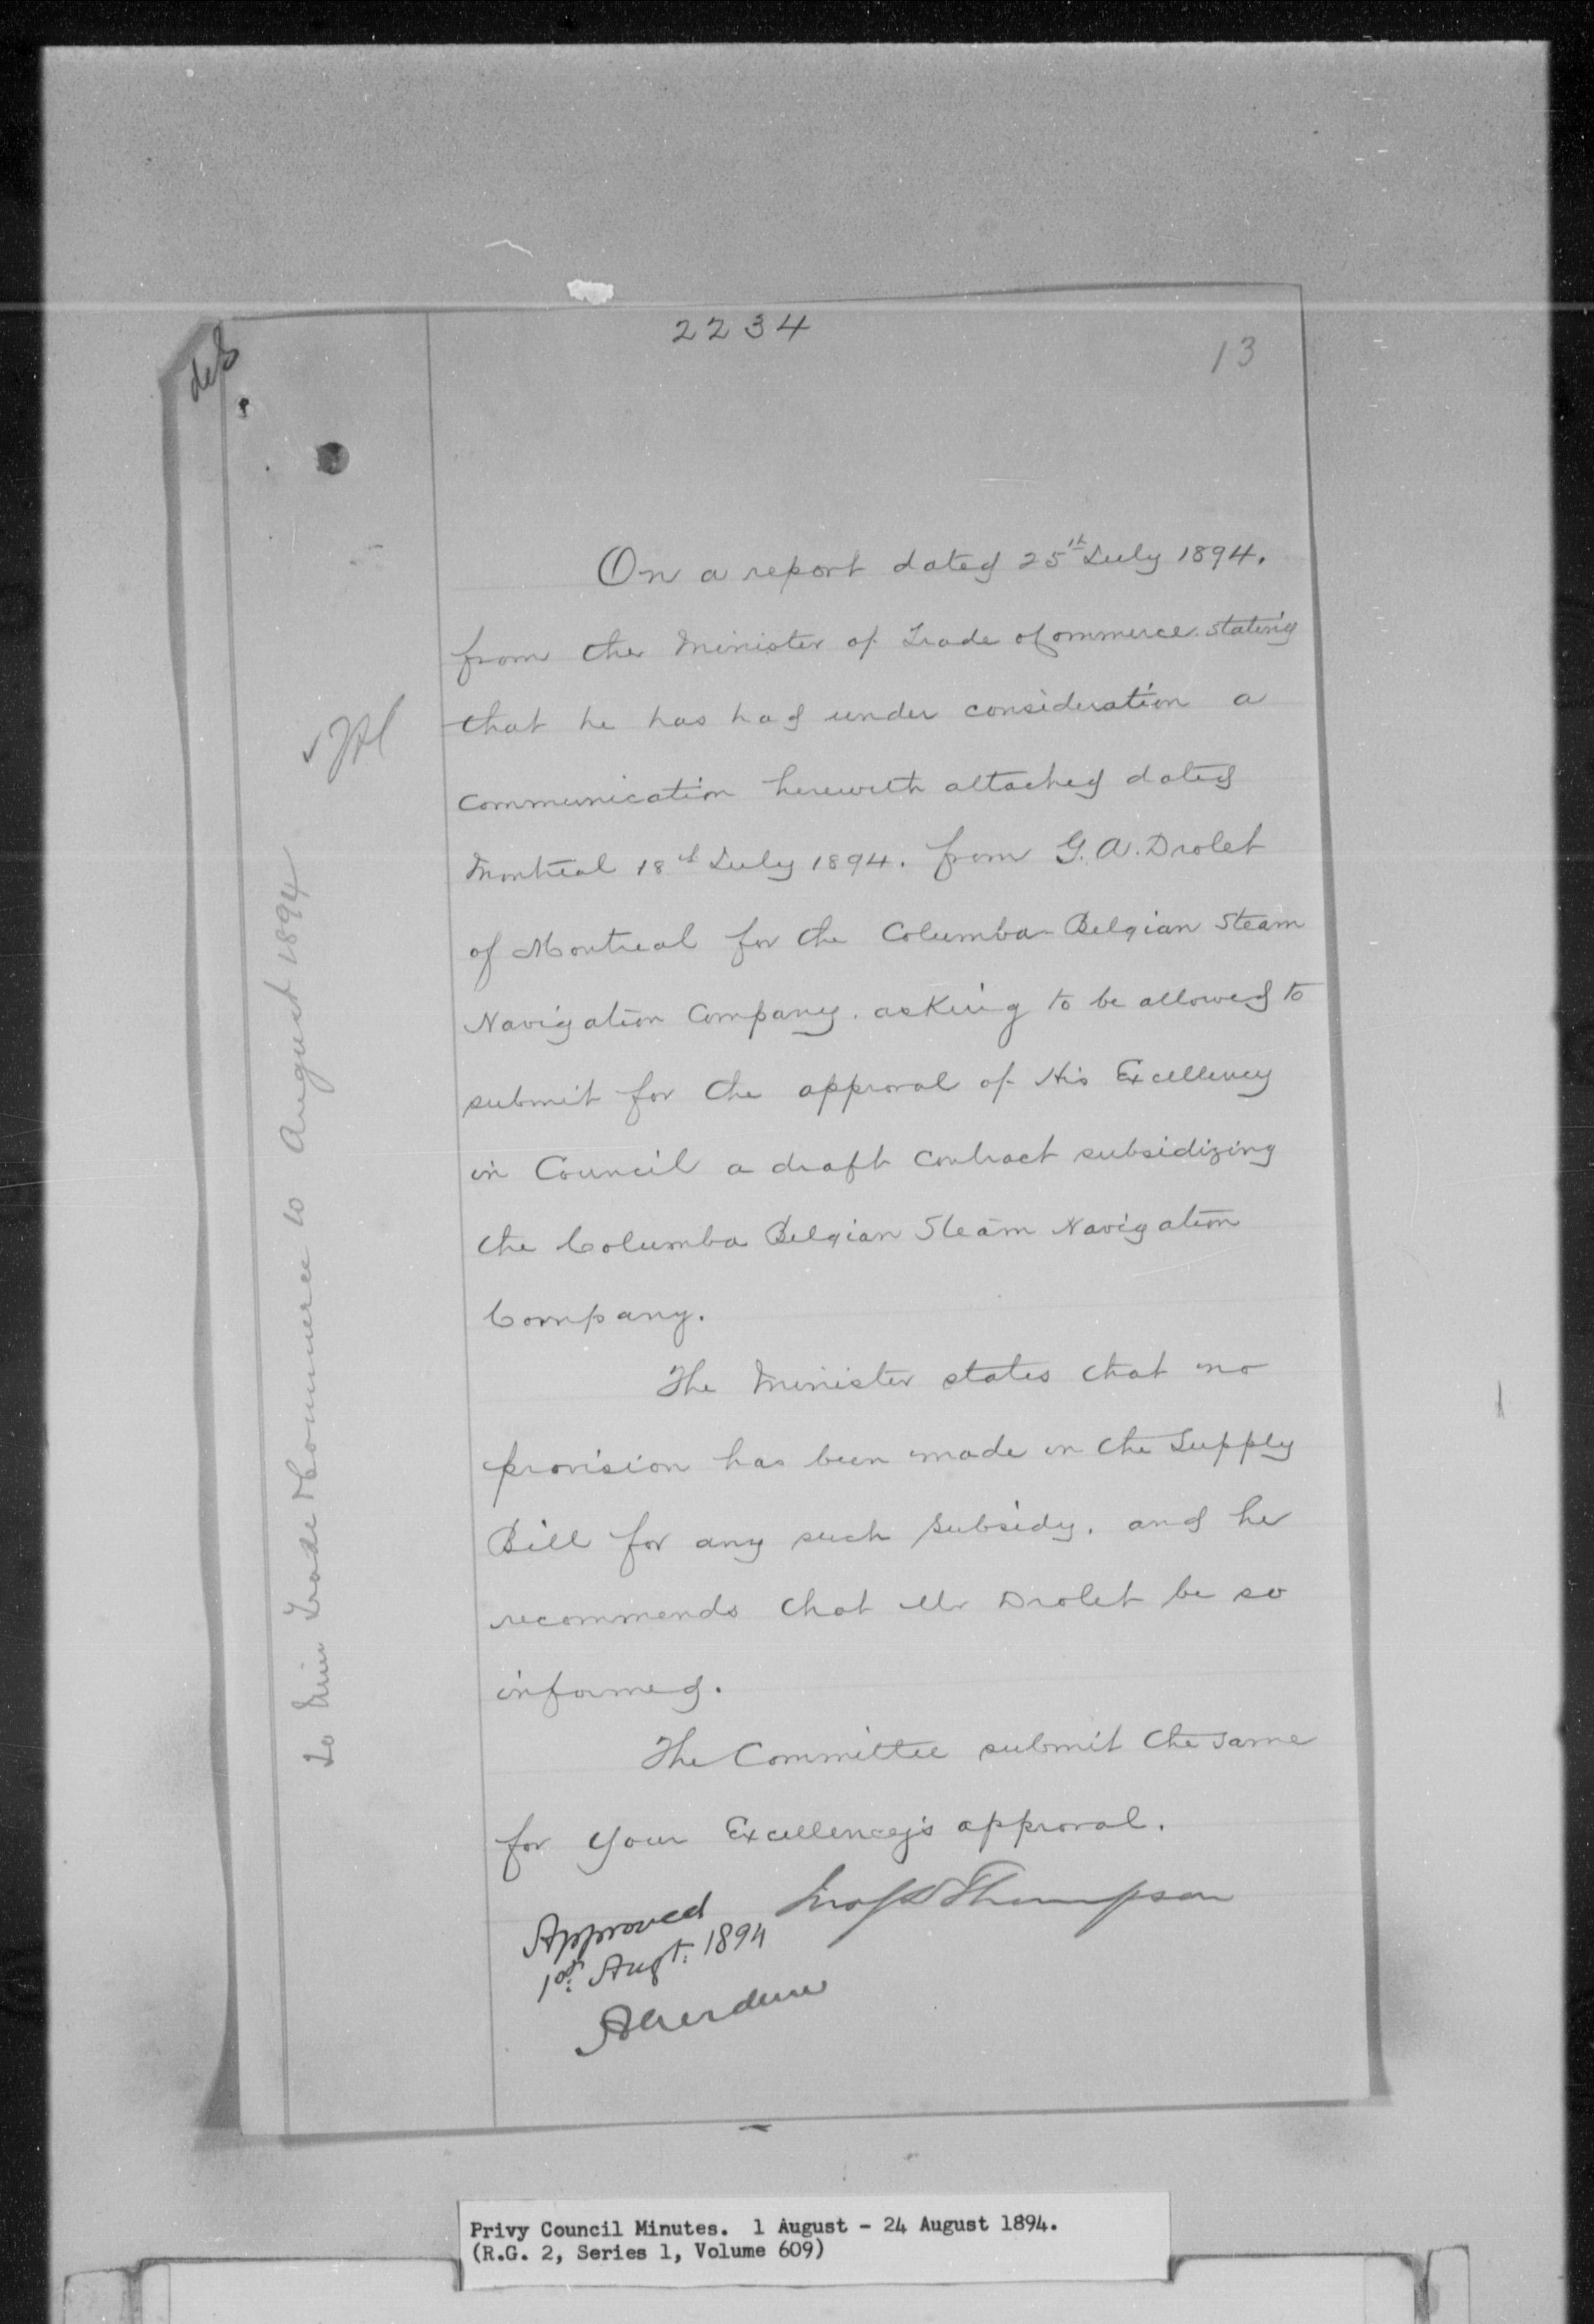 2234
13
On a report dated 25th July 1894.
from the Minister of Trade & Commerce stating
that he has had under consideration a
communication herewith attached dated
Montreal 18th July 1894. from G. A. Drolet
of Montreal for the Columba-Belgian Steam
Navigation Company. asking to be allowed to
submit for the approval of His Excellency
in Council a draft contract subsidizing
the Columba Belgian Steam Navigation
Company.
The Minister states that no
provision has been made in the Supply
Bill for any such subsidy, and he
recommends that Mr Drolet be so
informed.
The Committee submit the same
for Your Excellency's approval.
Jno S D Thompson
Approved
1st Augt. 1894
Aberdeen
To Min Trade & Commerce 10 August 1894
Privy Council Minutes. 1 August - 24 August 1894.
(R.G. 2, Series 1, Volume 609)